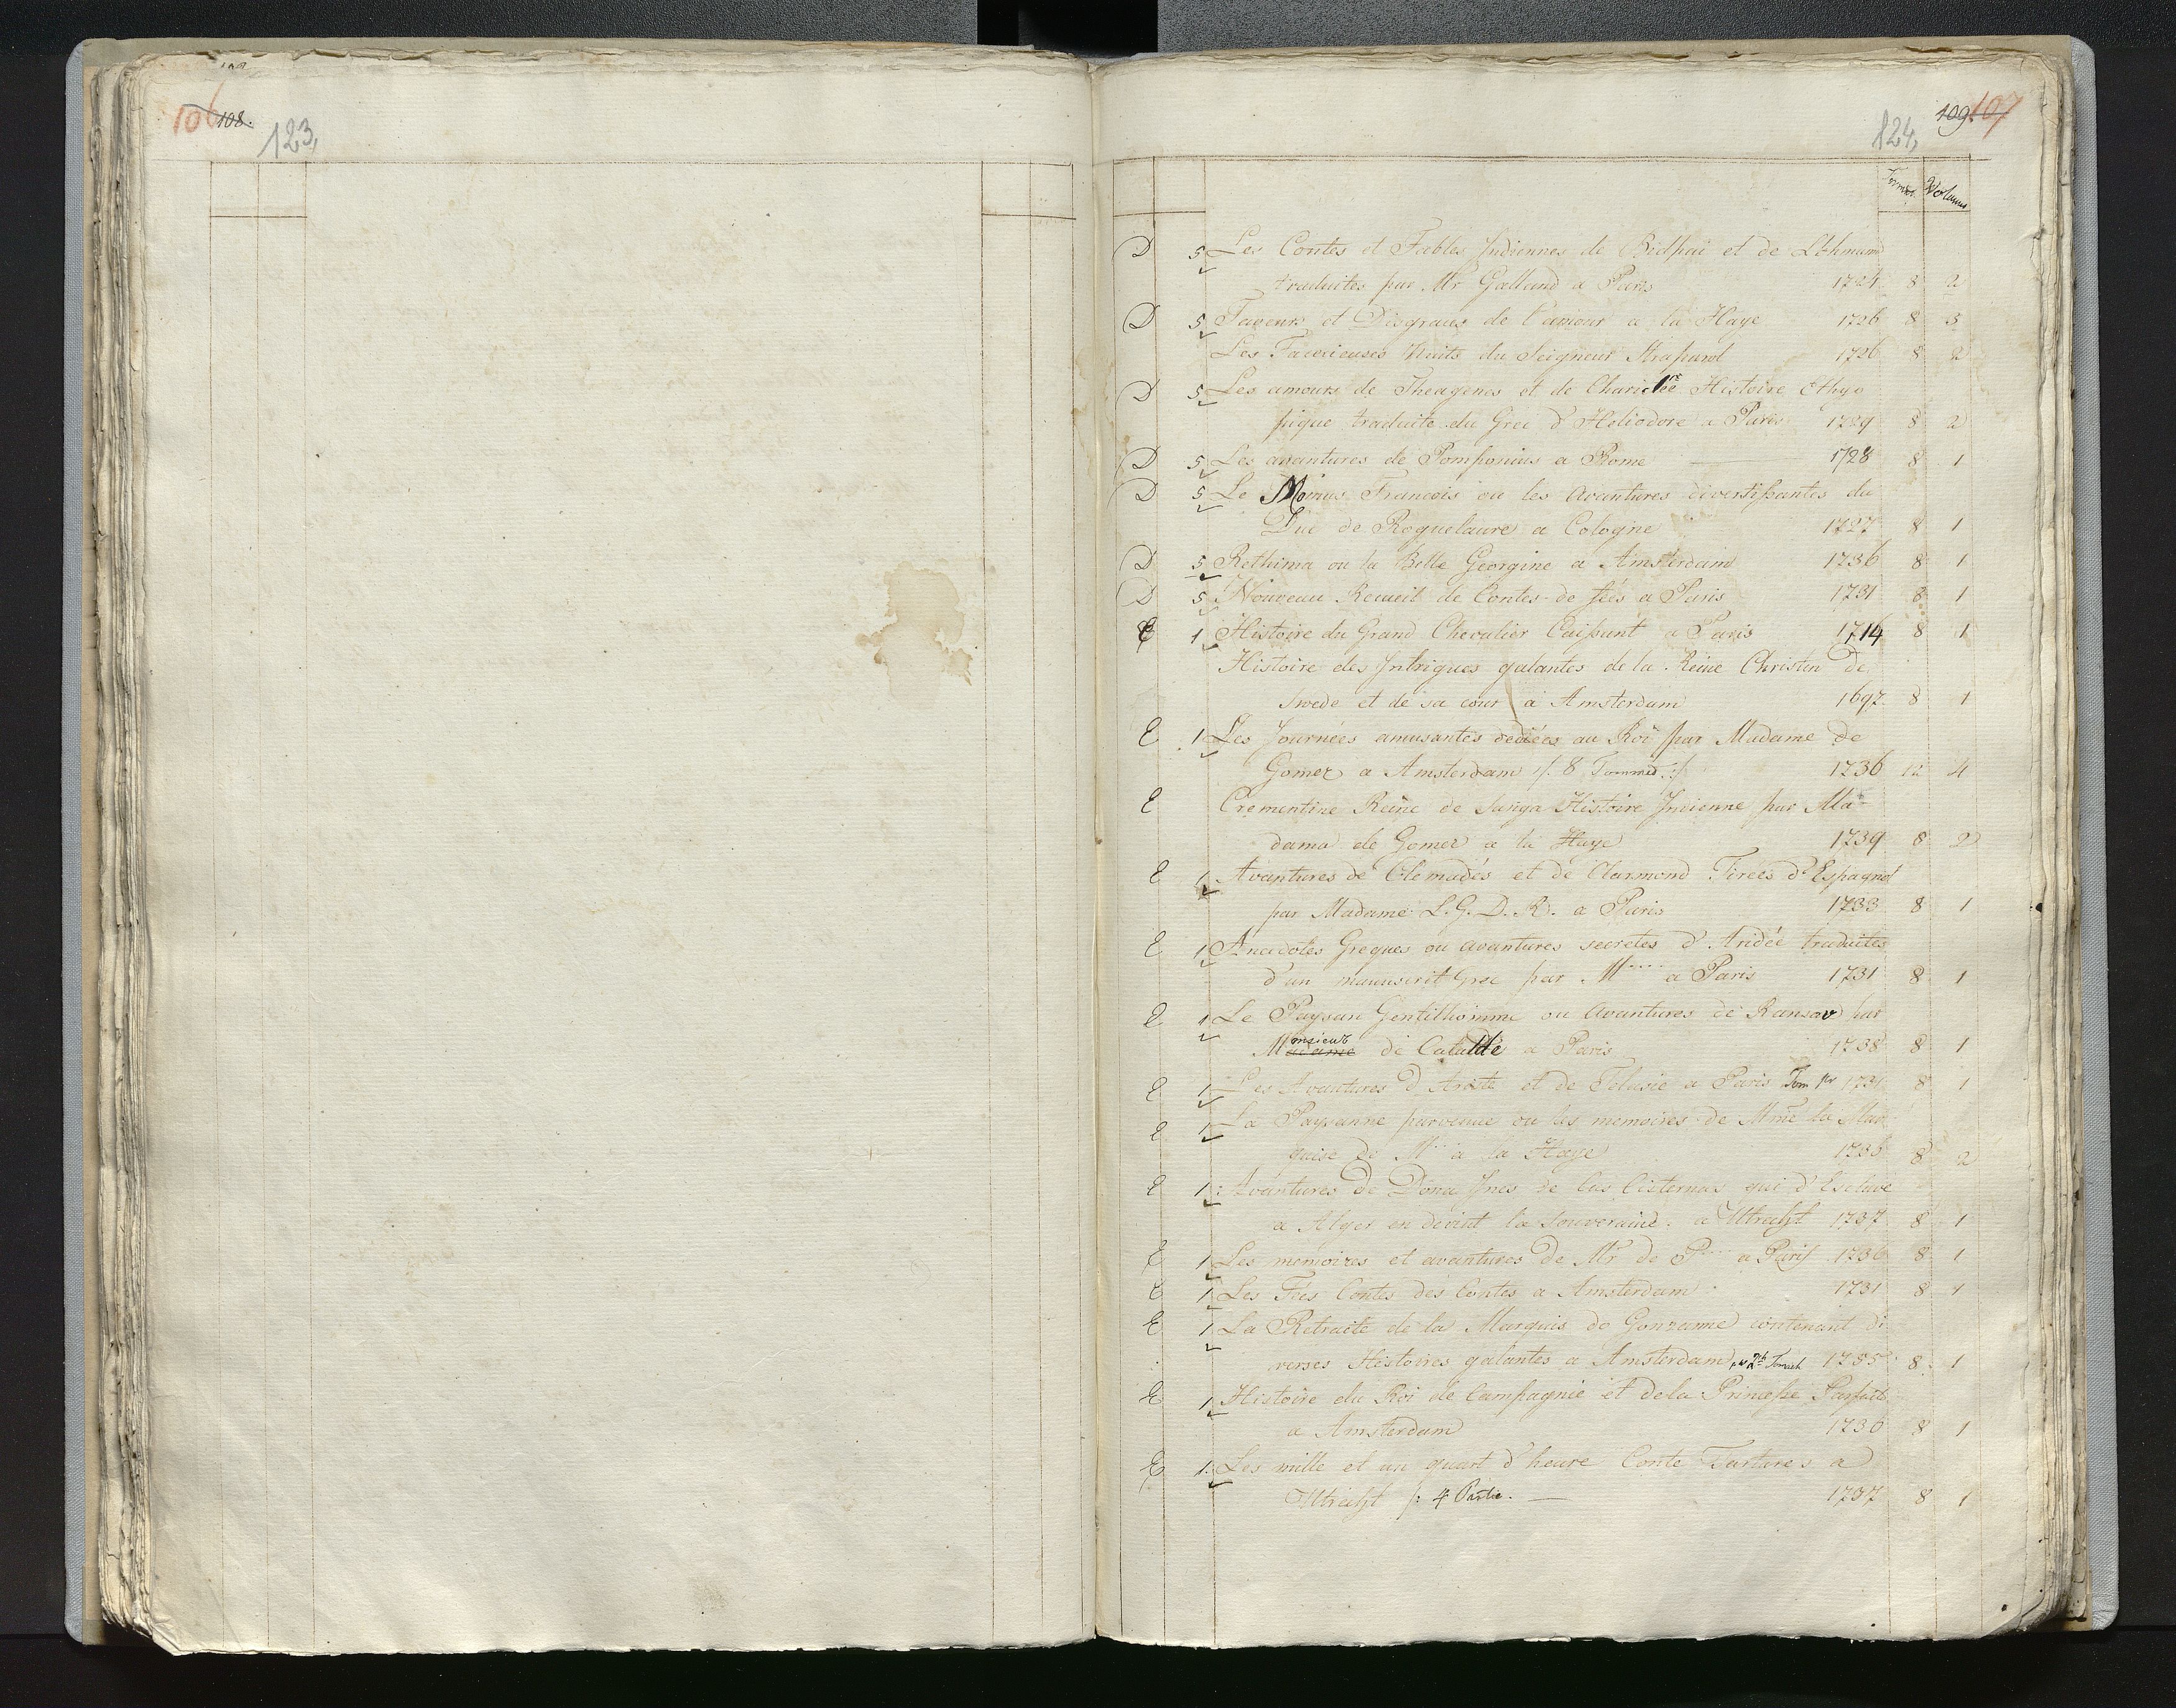 106 108.
123,
109. 107
124,
Format Volumes
D 5 Les Contes et Fables Indiennes de Bidpai et de Lokmann
traduites par Mr Galland a Paris 1724 8 2
D 5 Faveurs et Disgraces de l'amour a la Haye 1726 8 3
Les Facecieuses Nuits du Seigneur Straparol 1726 8 2
D 5 Les amours de Theagenes et de Chariclée Histoire Ethyo
pique traduite du Grec d'Heliodore a Paris 1729 8 2
D 5 Les avantures de Pomponius a Rome 1728 8 1
D 5 Le Momus Francois ou les Avantures divertissantes du
Duc de Roquelaure a Cologne 1727 8 1
D 5 Rethima ou la Belle Georgine a Amsterdam 1736 8 1
D 5 Nouveau Recueil de Contes de feés a Paris 1731 8 1
E 1 Histoire du Grand Chevalier Caissant a Paris 1714 8 1
Histoire des Intrigues galantes de la Reine Christin de
Swede et de sa cour a Amsterdam 1697 8 1
E 1 Les Journées amusantes dediées au Roi par Madame de
Gomez a Amsterdam /: 8 :/ 1736 12 4
E Crementine Reine de Sanga Histoire Indienne par Ma-
dama de Gomez a la Haye 1739 8 2
E 1 Avantures de Clemadés et de Clarmond Tirées d'Espagnol
par Madame L. G. D. R. a Paris 1733 8 1
E 1 Anecdotes Greques ou avantures secretes d'Aridée traduites
d'un manuscrit Grec par M.... a Paris 1731 8 1
E 1 Le Paysan Gentilhomme ou Avantures de Ransav par
Monsieur de Catalde a Paris 1738 8 1
E 1 Les Avantures d'Aroste et de Telasie a Paris Tom 1r 1731 8 1
E 1 La Paysanne parvenue ou les memoires de Mme la Mar
quise de M... a la Haye 1736 8 2
E 1 Avantures de Dona Ines de las Cisternas qui d'Esclave
a Alger en devint la souveraine. a Utrecht 1737 8 1
E 1 Les memoires et avantures de Mr de P... a Paris 1736 8 1
E 1 Les Feés Contes des Contes a Amsterdam 1731 8 1
E 1 La Retraite de la Marquis de Gonzanne contenant di
verses Histoires galantes a Amsterdam 1735 8 1
E 1 Histoire du Roi de Campagnie et de la Princesse Parfaite
a Amsterdam 1736 8 1
E 1 Les mille et un quart d'heure Conte Tartares a
Utrecht /: 4 Partie. 1737 8 1